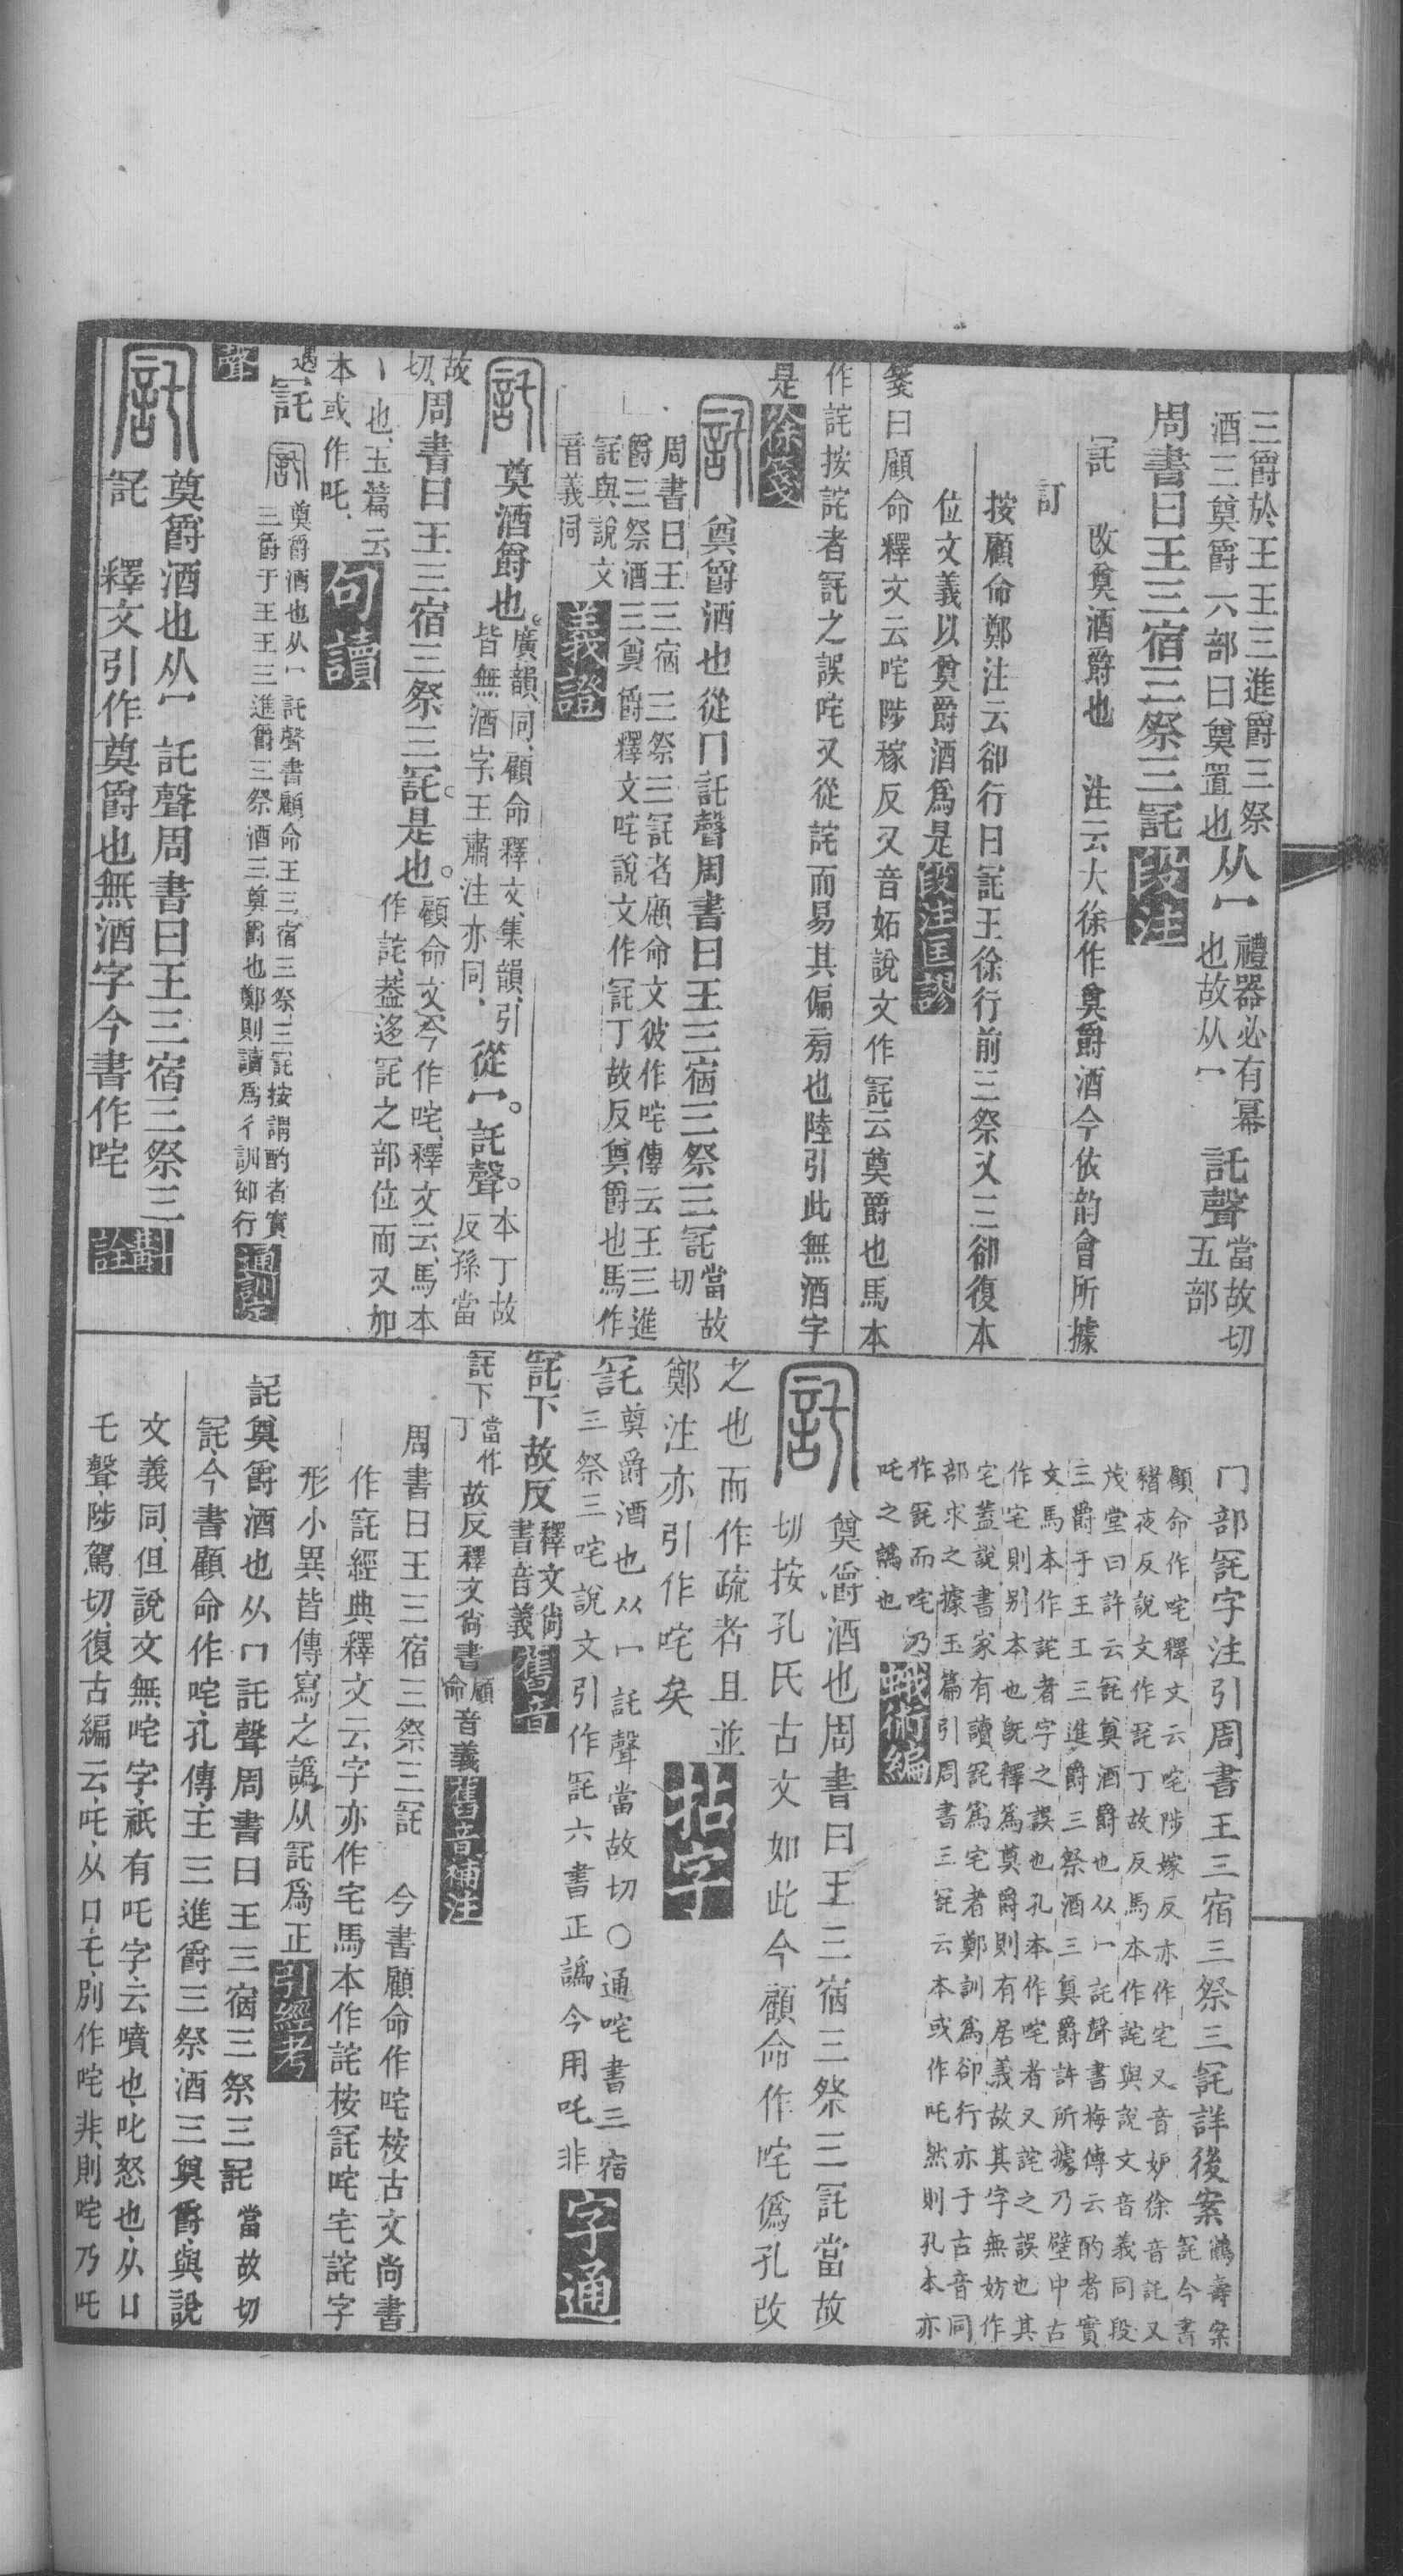 三爵於王王三進爵三祭
酒三奠爵六部曰奠置也
从冖
禮器必有冪
也故从冖
託聲
當故切
五部
周書曰王三宿三祭三𠖞
段注
𠖞　改奠酒爵也　注云大徐作奠爵酒今依韵會所據
訂
按顧命鄭注云卻行曰𠖞王徐行前三祭又三卻復本
位文義以奠爵酒爲是
段注匡謬
箋曰顧命釋文云咤陟稼反又音妬說文作𠖞云奠爵也馬本
作詫按詫者𠖞之誤咤又從詫而易其偏旁也陸引此無酒字
是
徐箋
奠爵酒也從冂託聲周書曰王三宿三祭三𠖞
當故
切
周書曰王三宿三祭三𠖞者顧命文彼作咤傳云王三進
爵三祭酒三奠爵釋文咤說文作𠖞丁故反奠爵也馬作
𠖞與說文
音義同
義證
奠酒爵也。
廣韻同、顧命釋文、集韻引
皆無酒字、王肅注亦同、
從冖。託聲。
本丁故
反孫當
故
切、
周書曰王三宿三祭三𠖞。是也。
顧命文、今作咤、釋文云、馬本
作詫、葢迻𠖞之部位而又加
丶也、玉篇云
本或作吒、
句讀
𠖞
奠爵酒也从冖託聲書顧命王三宿三祭三𠖞按謂酌者實
三爵于王王三進爵三祭酒三奠爵也鄭則讀爲彳訓卻行
通訓
聲
奠爵酒也从冖託聲周書曰王三宿三祭三
𠖞　釋文引作奠爵也無酒字今書作咤
斠
詮
冂部𠖞字注引周書王三宿三祭三𠖞詳後案
鶴壽案
𠖞今書
顧命作咤釋文云咤陟嫁反亦作宅又音妒徐音託又
豬夜反說文作𠖞丁故反馬本作詫與說文音義同段
茂堂曰許云𠖞奠酒爵也从冖託聲書梅傳云酌者實
三爵于王王三進爵三祭酒三奠爵許所據乃壁中古
文馬本作詫者字之誤也孔本作咤者又詫之誤也其
作宅則别本也旣釋爲奠爵則有居義故其字無妨作
宅蓋說書家有讀𠖞爲宅者鄭訓爲卻行亦于古音同
部求之據玉篇引周書三𠖞云本或作吒然則孔本亦
作𠖞而咤乃
吒之譌也
蛾術編
奠爵酒也周書曰王三宿三祭三𠖞當故
切按孔氏古文如此今顧命作咤僞孔改
之也而作疏者且並
鄭注亦引作咤矣
拈字
𠖞
奠爵酒也从冖託聲當故切○通咤書三宿
三祭三咤說文引作𠖞六書正譌今用吒非
字通
𠖞下故反
釋文尚
書音義
舊音
𠖞下
當作
丁
故反釋文尚書
顧
命
音義
舊音補注
周書曰王三宿三祭三𠖞　今書顧命作咤桉古文尚書
作𠖞經典釋文云字亦作宅馬本作詫桉𠖞咤宅詫字
形小異皆傳寫之譌从𠖞爲正
引經考
𠖞奠爵酒也从冂託聲周書曰王三宿三祭三𠖞　當故切
𠖞、今書顧命作咤、孔傳、王三進爵三祭酒三奠爵、與說
文義同、但說文無咤字、祇有吒字、云噴也、叱怒也、从口
乇聲、陟駕切、復古編云、吒、从口乇、別作咤非、則咤乃吒